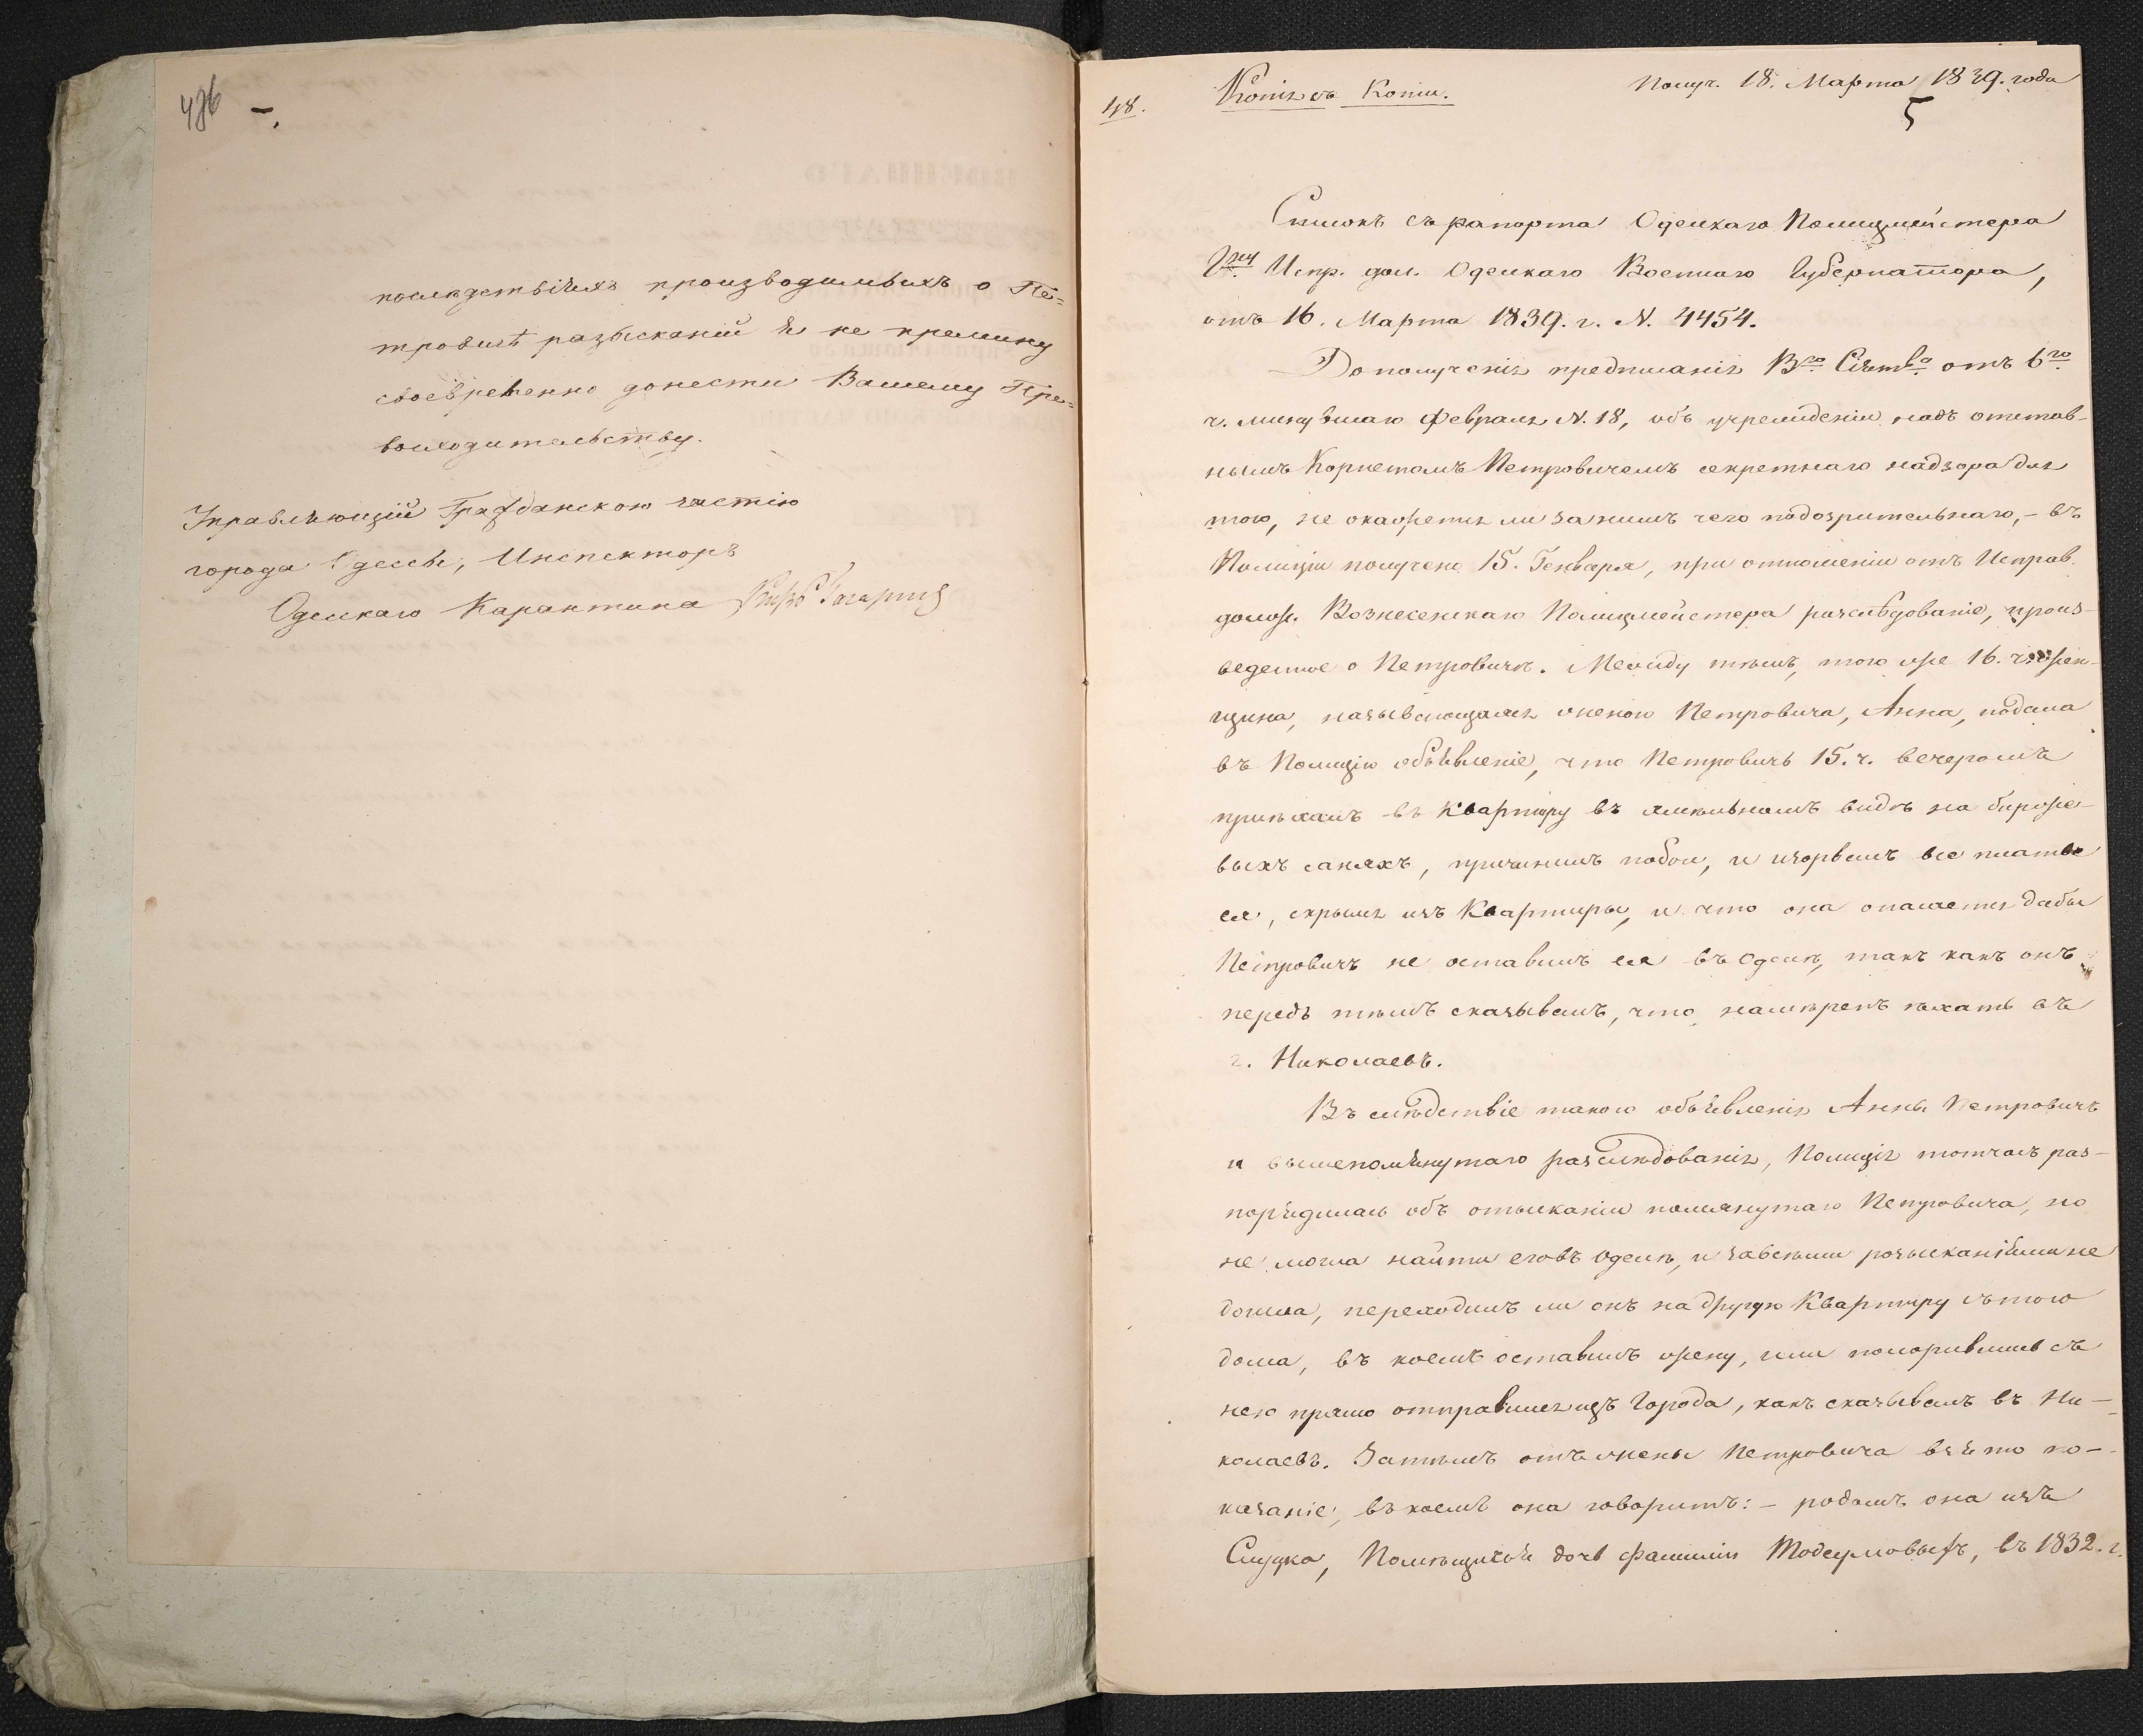 436 –.
послѣдствіяхъ производимыхъ о Пе=
тровичѣ разысканій я не премину
своевременно донести Вашему Пре=
восходительству.
Управляющій Гражданскою частію
города Одессы, Инспекторъ
Одесскаго Карантина Князь Гагаринъ
48.
Копія съ Копіи.
Получ. 18. Марта 1839. года
5
Списокъ съ рапорта Одесскаго Полицмейстера
Испр. дол. Одесскаго Военнаго Губернатора,
отъ 16. Марта 1839. г. N. 4454.
До полученія предписанія Вго Сіятва отъ 6го
ч. минувшаго Февраля N. 18, объ учрежденіи надъ отстав-
нымъ Корнетомъ Петровичемъ секретнаго надзора для
того, не окажется ли за нимъ чего подозрительнаго, – въ
Полиціи получено 15. Генваря, при отношеніи отъ Исправ.
долж. Вознесенскаго Полицмейстера разслѣдованіе, произ-
веденное о Петровичѣ. Между тѣмъ, того же 16. ч. жен-
щина, называющаяся женою Петровича, Анна, подала
въ Полицію объявленіе, что Петровичъ 15. ч. вечеромъ
пріѣхалъ въ Квартиру въ хмѣльномъ видѣ на биржe-
выхъ саняхъ, причинилъ побои, и изорвалъ все платье
ея, скрылся изъ Квартиры, и что она опасается дабы
Петровичъ не оставилъ ея въ Одессѣ, такъ какъ онъ
передъ тѣмъ сказывалъ, что намѣренъ ѣхать въ
г. Николаевъ.
Въ слѣдствіе такого объявленія Анны Петровичъ
и вышепомянутаго разслѣдованія, Полиція тотчасъ рас-
порядилась объ отысканіи помянутаго Петровича, но
не могла найти его въ Одессѣ, и за всѣми розысканіями не
дошла, переходилъ ли онъ на другую Квартиру съ того
дома, въ коемъ оставилъ жену, или поссорившись съ
нею прямо отправился изъ Города, какъ сказывалъ въ Ни-
колаевъ. Затѣмъ отъ жены Петровича взято по-
казаніе, въ коемъ она говоритъ: – родомъ она изъ
Слуцка, Помѣщичья дочь фамиліи, въ 1832. г.